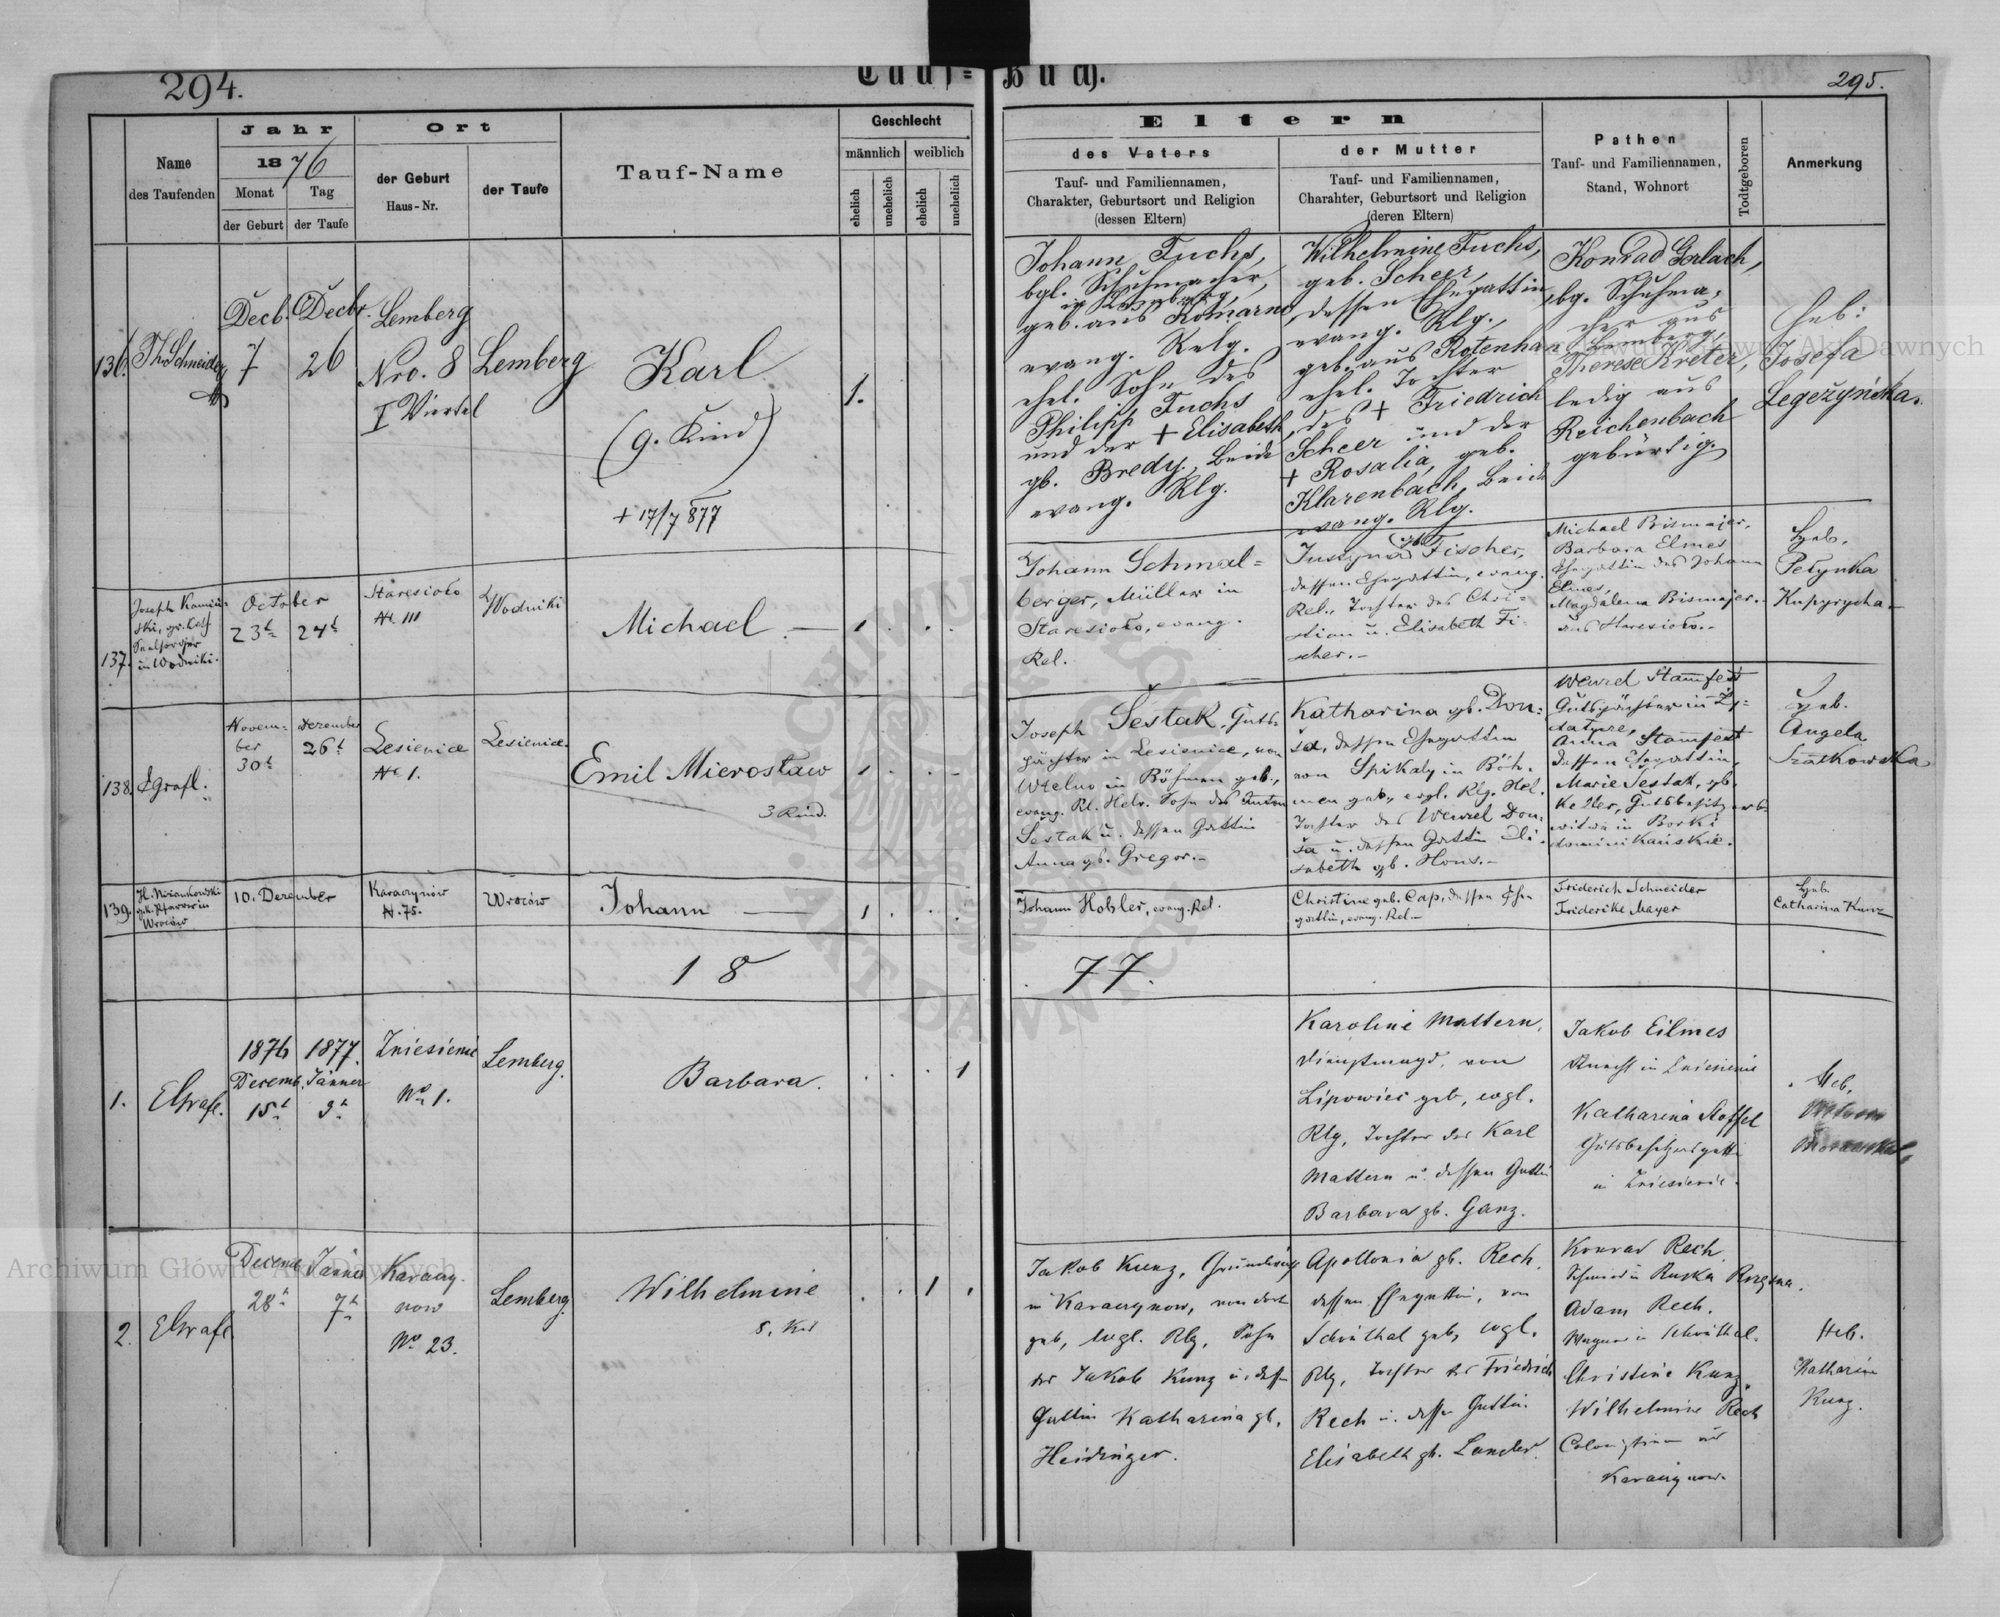 294.
Tauf=Buch.
295.
Name
des Taufenden
Jahr
1876
Monat
der Geburt
Tag
der Taufe
Ort
der Geburt
Haus-Nr.
der Taufe
Tauf-Name
Geschlecht
männlich
weiblich
ehelich
unehelich
ehelich
unehelich
Eltern
des Vaters
Tauf- und Familiennamen,
Charakter, Geburtsort und Religion
(dessen Eltern)
der Mutter
Tauf- und Familiennamen,
Charahter, Geburtsort und Religion
(deren Eltern)
Pathen
Tauf- und Familiennamen,
Stand, Wohnort
Todtgeboren
Anmerkung
136.
Th. Schneider
Decb.
7
Decbr.
26
Lemberg
Nro. 8
I Viertel
Lemberg
Karl
(9. Kind)
+ 17/7 877
1.
Johann Fuchs,
bgl. Schuhmacher,
in Lemberg,
geb. aus Komarno,
evang. Relg.
ehel. Sohn des
Philipp Fuchs
und der + Elisabeth,
gb. Bredy, beide
evang. Rlg.
Wilhelmine Fuchs,
geb. Scheer,
dessen Ehegattin
evang. Rlg.,
geb. aus Rotenhan
ehel. Tochter
des + Friedrich
Scheer und der
+ Rosalia, geb.
Klarenbach, beide
evang. Rlg.
Konrad Gerlach,
bg. Schuhma-
cher aus
Lemberg,
Therese Kreter,
ledig aus
Reichenbach
gebürtig.
Heb:
Josefa
Legeżyńska.
137.
Joseph Kamiń-
ski, gr. kath
Seelsorger
in Wodniki.
October
23t
24t
Staresioło
No III
Wodniki
Michael
1
Johann Schmal=
berger, Müller in
Staresioło, evang.
Rel.
Justyna gb. Fischer,
dessen Ehegattin, evang.
Rel., Tochter des Chri-
stian u. Elisabeth Fi-
scher.-
Michael Bismajer,
Barbara Elmes
Ehegattin des Johann
Elmes,
Magdalena Bismajer
aus Staresioło.-
Heb.
Petynka
Kupyrycha
138.
EGrafl.
Novem-
ber
30t
Dezember
26t
Lesienice
No 1.
Lesienice.
Emil Mierosław
3 Kind.
1
Joseph Šestak, Guts-
pächter in Lesienice, von
in Böhmen geb.,
evang. Rl. Helv. Sohn des Anton
Šestak u. dessen Gattin
Anna gb. Gregor.-
Katharina gb. Don-
ša, dessen Ehegattin
von Spikaly in Böh-
men geb., evgl. Rlg. Hel.
Tochter des Wenzel Don-
ša u. dessen Gattin Eli-
sabeth gb. Hons.-
Wenzel Stamfest
Gutspächter in Zy-
datycze,
Anna Stamfest
dessen Ehegattin,
Marie Šestak, gb.
Keller, Gutsbesitzers
witwe in Borki
dominikańskie.
Heb.
Angela
139.
gr. k. Pfarrer in
Wrocow
10. Dezember
Karaczynów
N. 75.
Wroców
Johann
1
Johann Hobler, evang. Rel.
Christine geb. Cap, dessen Ehe-
gattin, evang. Rel.-
Friderich Schneider
Friderike Mayer
Heb.
Catharina Kunz
18
77.
1.
EGrafl.
1876
Decemb.
15t
1877.
Jänner
3t
Zniesienie
No 1.
Lemberg.
Barbara.
1
Karoline Mattern,
Dienstmagd, von
Lipowiec geb, evgl.
Rlg, Tochter des Karl
Mattern u. dessen Gattin
Barbara gb. Ganz.
Jakob Eilmes
Knecht in Zniesienie
Katharina Stoffel
Gutsbesitzersgattin
in Zniesienie.
Heb.
2.
EGrafl
Decemb
28t
Jänner
7t
Karaczy-
now
No 23.
Lemberg.
Wilhelmine
8. Kind
1
Jakob Kunz, Grundwirth
in Karaczynow, von dort
geb, evgl. Rlg, Sohn
des Jakob Kunz u. dessen
Gattin Katharina gb.
Heidinger.
Apollonia gb. Rech,
dessen Ehegattin, von
Schönthal geb, evgl.
Rlg, Tochter des Friedrich
Rech u. dessen Gattin
Elisabeth gb. Lander.
Konrad Rech,
Schmied in Ruska
Adam Rech,
Wagner in Schönthal.
Christine Kunz,
Wilhelmine Rech
Colonistinen aus
Karaczynow.
Heb.
Katharina
Kunz.
Archiwum Główne Akt Dawnych
Archiwum Główne Akt Dawnych
ARCHIWUM GŁÓWNE AKT DAWNYCH